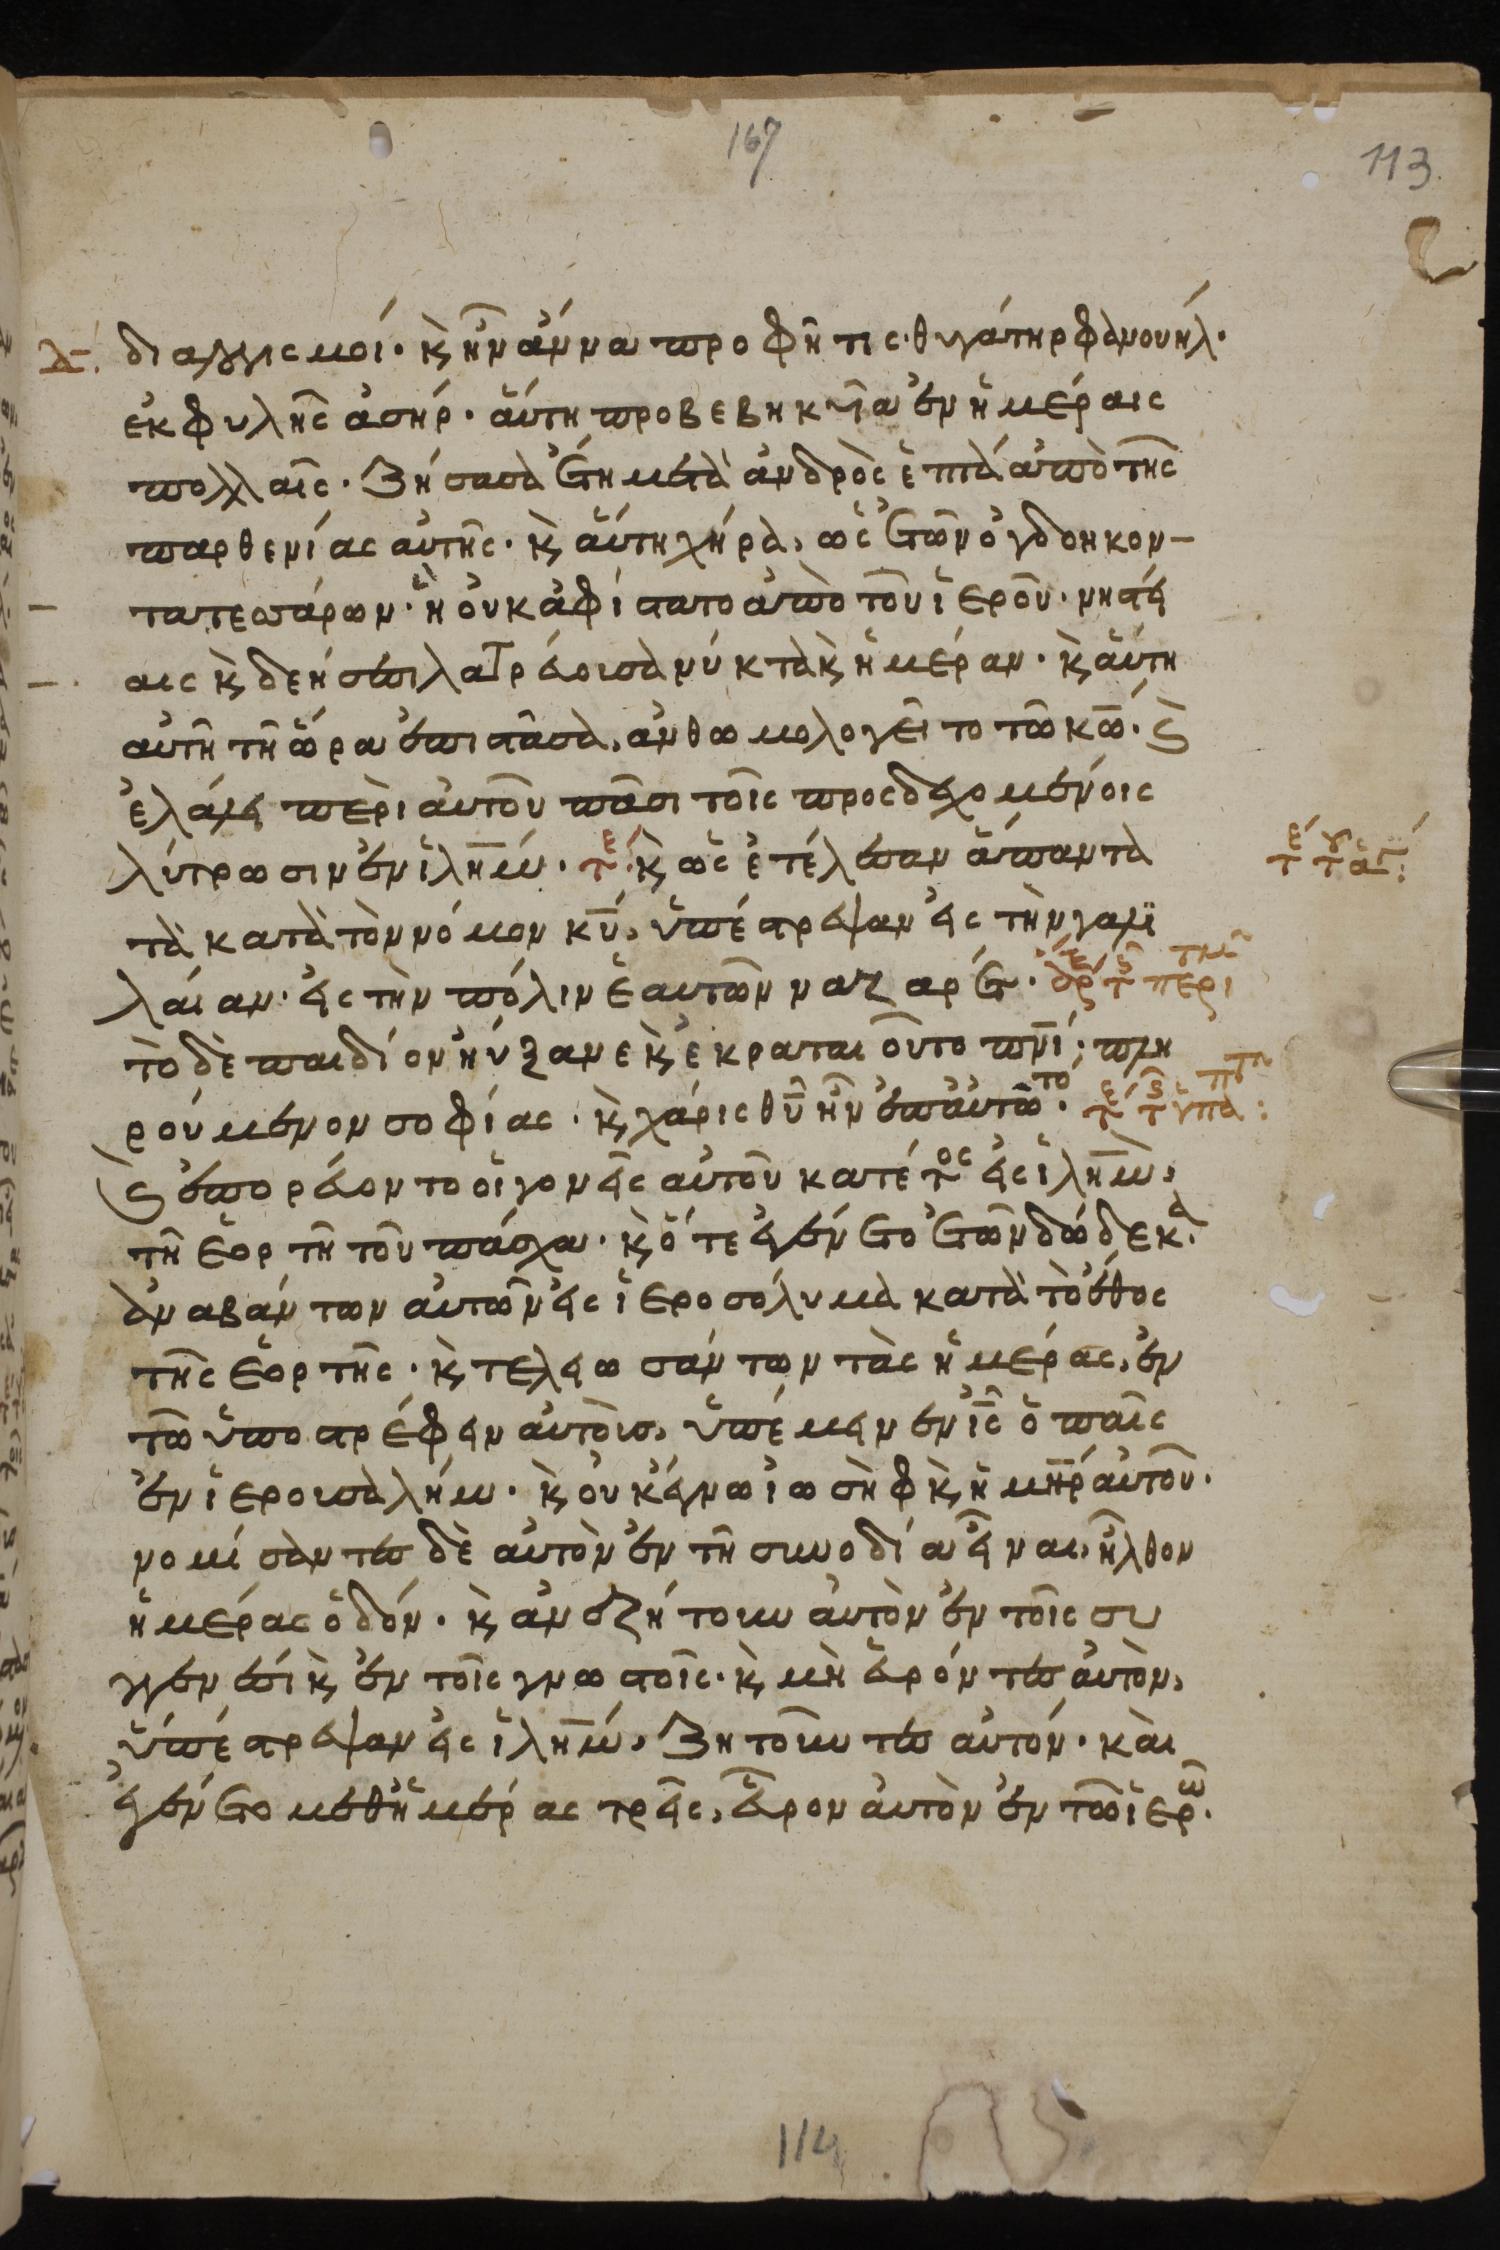 167
113
διαλογισμοί. κ̀ ἦν ἄννα προφῆτις. θυγάτηρ φανουήλ.
ἐκ φυλῆς ἀσήρ. ἅυτη προβεβηκυῖα ἐν ἡμέραις
πολλαῖς. ζήσασα ἔτη μετὰ ἀνδρὸς ἑπτὰ ἀπὸ τῆς
παρθενίας αὐτῆς. κ̀ ἅυτη χήρα, ὡς ἐτῶν ὀγδοηκον-
τατεσσάρων. ἣ οὐκ ἀφίστατο ἀπὸ τοῦ ἱεροῦ. νηστεί
αις κ̀ δεήσεσι λατρεύουσα νύκτα κ̀ ἡμέραν. κ̀ ἅυτη
αὐτῆ τῆ ὥρα ἐπιστᾶσα, ἀνθωμολογεῖτο τῶ κῶ. κ̀
ἐλάλει περὶ αὐτοῦ πᾶσι τοῖς προσδεχομένοις
λύτρωσιν ἐν ἰλῆμ. τε κ̀ ὡς ἐτέλεσαν ἅπαντα
τὰ κατὰ τὸν νόμον κυ, ὑπέστρεψαν εἰς τὴν γαλι
λαίαν. εἰς τὴν πόλιν ἑαυτῶν ναζαρέτ.
τὸ δὲ παιδίον ηὔξανε κ̀ ἐκραταιοῦτο πνι; πλη
ρούμενον σοφίας. κ̀ χάρις θυ ἦν ἐπ αὐτό.
κ̀ ἐπορεύοντο οἱ γονεῖς αὐτοῦ κατέτος εἰς ἰλημ,
τῆ ἑορτῆ τοῦ πάσχα. κ̀ ὅτε ἐγένετο ἐτῶν δώδεκα.
ἀναβάντων αὐτῶν εἰς ἱεροσόλυμα κατὰ τὸ ἔθος
τῆς ἑορτῆς. κ̀ τελειωσάντων τὰς ἡμέρας, ἐν
τῶ ὑποστρέφειν αὐτοὺς, ὑπέμεινεν ις ὁ παῖς
ἐν ἱερουσαλήμ. κ̀ οὐκ ἔγνω ἰωσὴφ κ̀ ἡ μηρ αὐτοῦ.
νομίσαντες δὲ αὐτὸν ἐν τῆ συνοδία εἶναι, ἦλθον
ἡμέρας ὁδόν. κ̀ ἀνεζήτουν αὐτὸν ἐν τοῖς συ
γγενέσι κ̀ ἐν τοῖς γνωστοῖς. κ̀ μὴ εὑρόντες αὐτὸν,
ὑπέστρεψαν εἰς ἰλημ, ζητοῦντες αὐτόν. καὶ
ἐγένετο μεθ ἡμέρας τρεῖς, εὗρον αὐτὸν ἐν τῶ ἱερῶ.
114